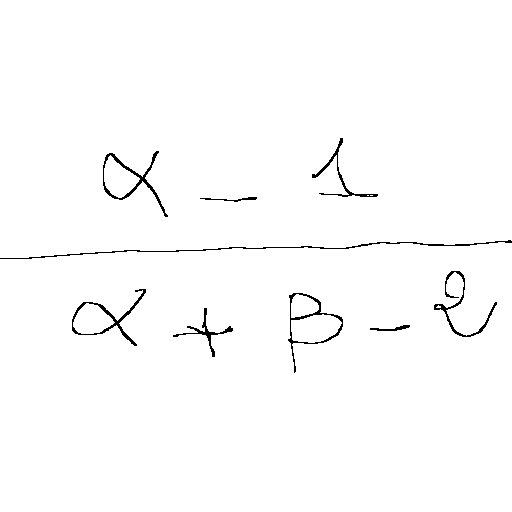 α - 1
α + β - 2